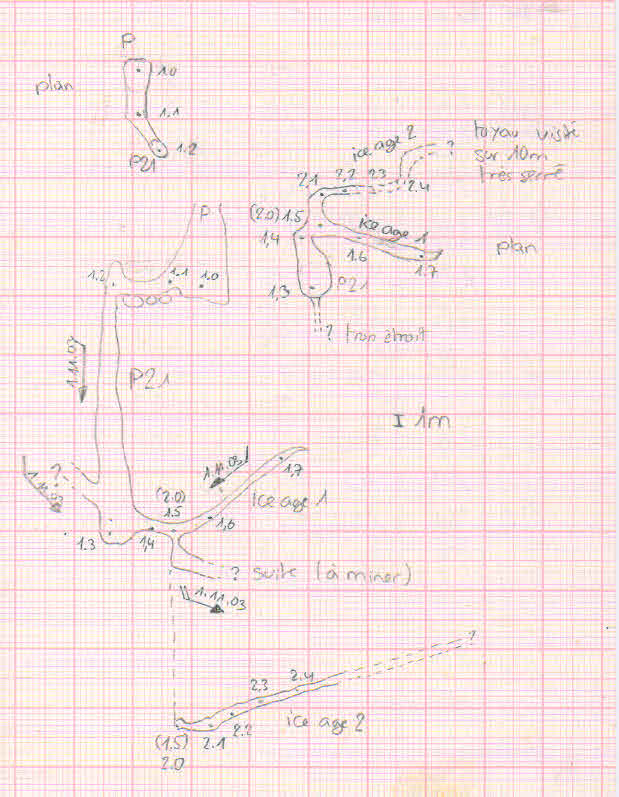 P
plan
1.0
1.1
1.2
P21
ice age 2
?
toyau visité
sur 10m
très serré
2.1
2.2
2.3
2.4
(2.0) 1.5
ice age 1
1,4
1.6
1.7
plan
1,3
P21
? trop étroit
P
1.2
1.1
1.0
1.11.03
P21
I 1m
?
1.11.03
1.11.03
1,7
(2.0)
1.5
1,6
ice age 1
1.3
1,4
? suite (à miner)
1.11.03
?
2.4
2.3
2.2
ice age 2
(1.5)
2.1
2.0